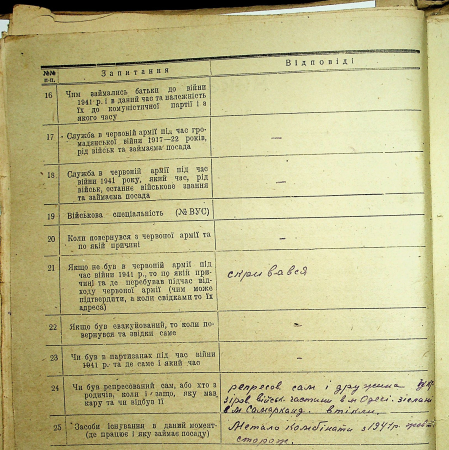 №№ п.п.
Запитання
Відповіді
16
Чим займались батьки до війни
1941 р. і в даний час та належність
їх до комуністичної партії і з
якого часу
17
Служба в червоній армії під час гро-
мадянської війни 1917—22 років,
рід військ та займаєма посада
—
18
Служба в червоній армії під час
війни 1941 року, який час, рід
військ, останнє військове звання
та займаєма посада
—
19
Військова спеціальність (№ ВУС)
20
Коли повернувся з червоної армії та
по якій причині
—
21
Якщо не був в червоній армії під
час війни 1941 р., то по якій при-
чині та де перебував підчас від-
ходу червоної армії (чим може
підтвердити, а коли свідками то їх
адреса)
скривався
22
Якщо був евакуйований, то коли по-
вернувся та звідки саме
—
23
Чи був в партизанах під час війни
1941 р. та де саме і який час
—
24
Чи був репресований сам, або хто з
родичів, коли і за що, яку мав
кару та чи відбув її
репресов сам і дружина
військ. частини в м Одесі. зіслані
в м Самарканд. втікли.
25
Засоби існування в даний момент
(де працює і яку займає посаду)
Метало Комбінаті з 1941 р.
сторож.